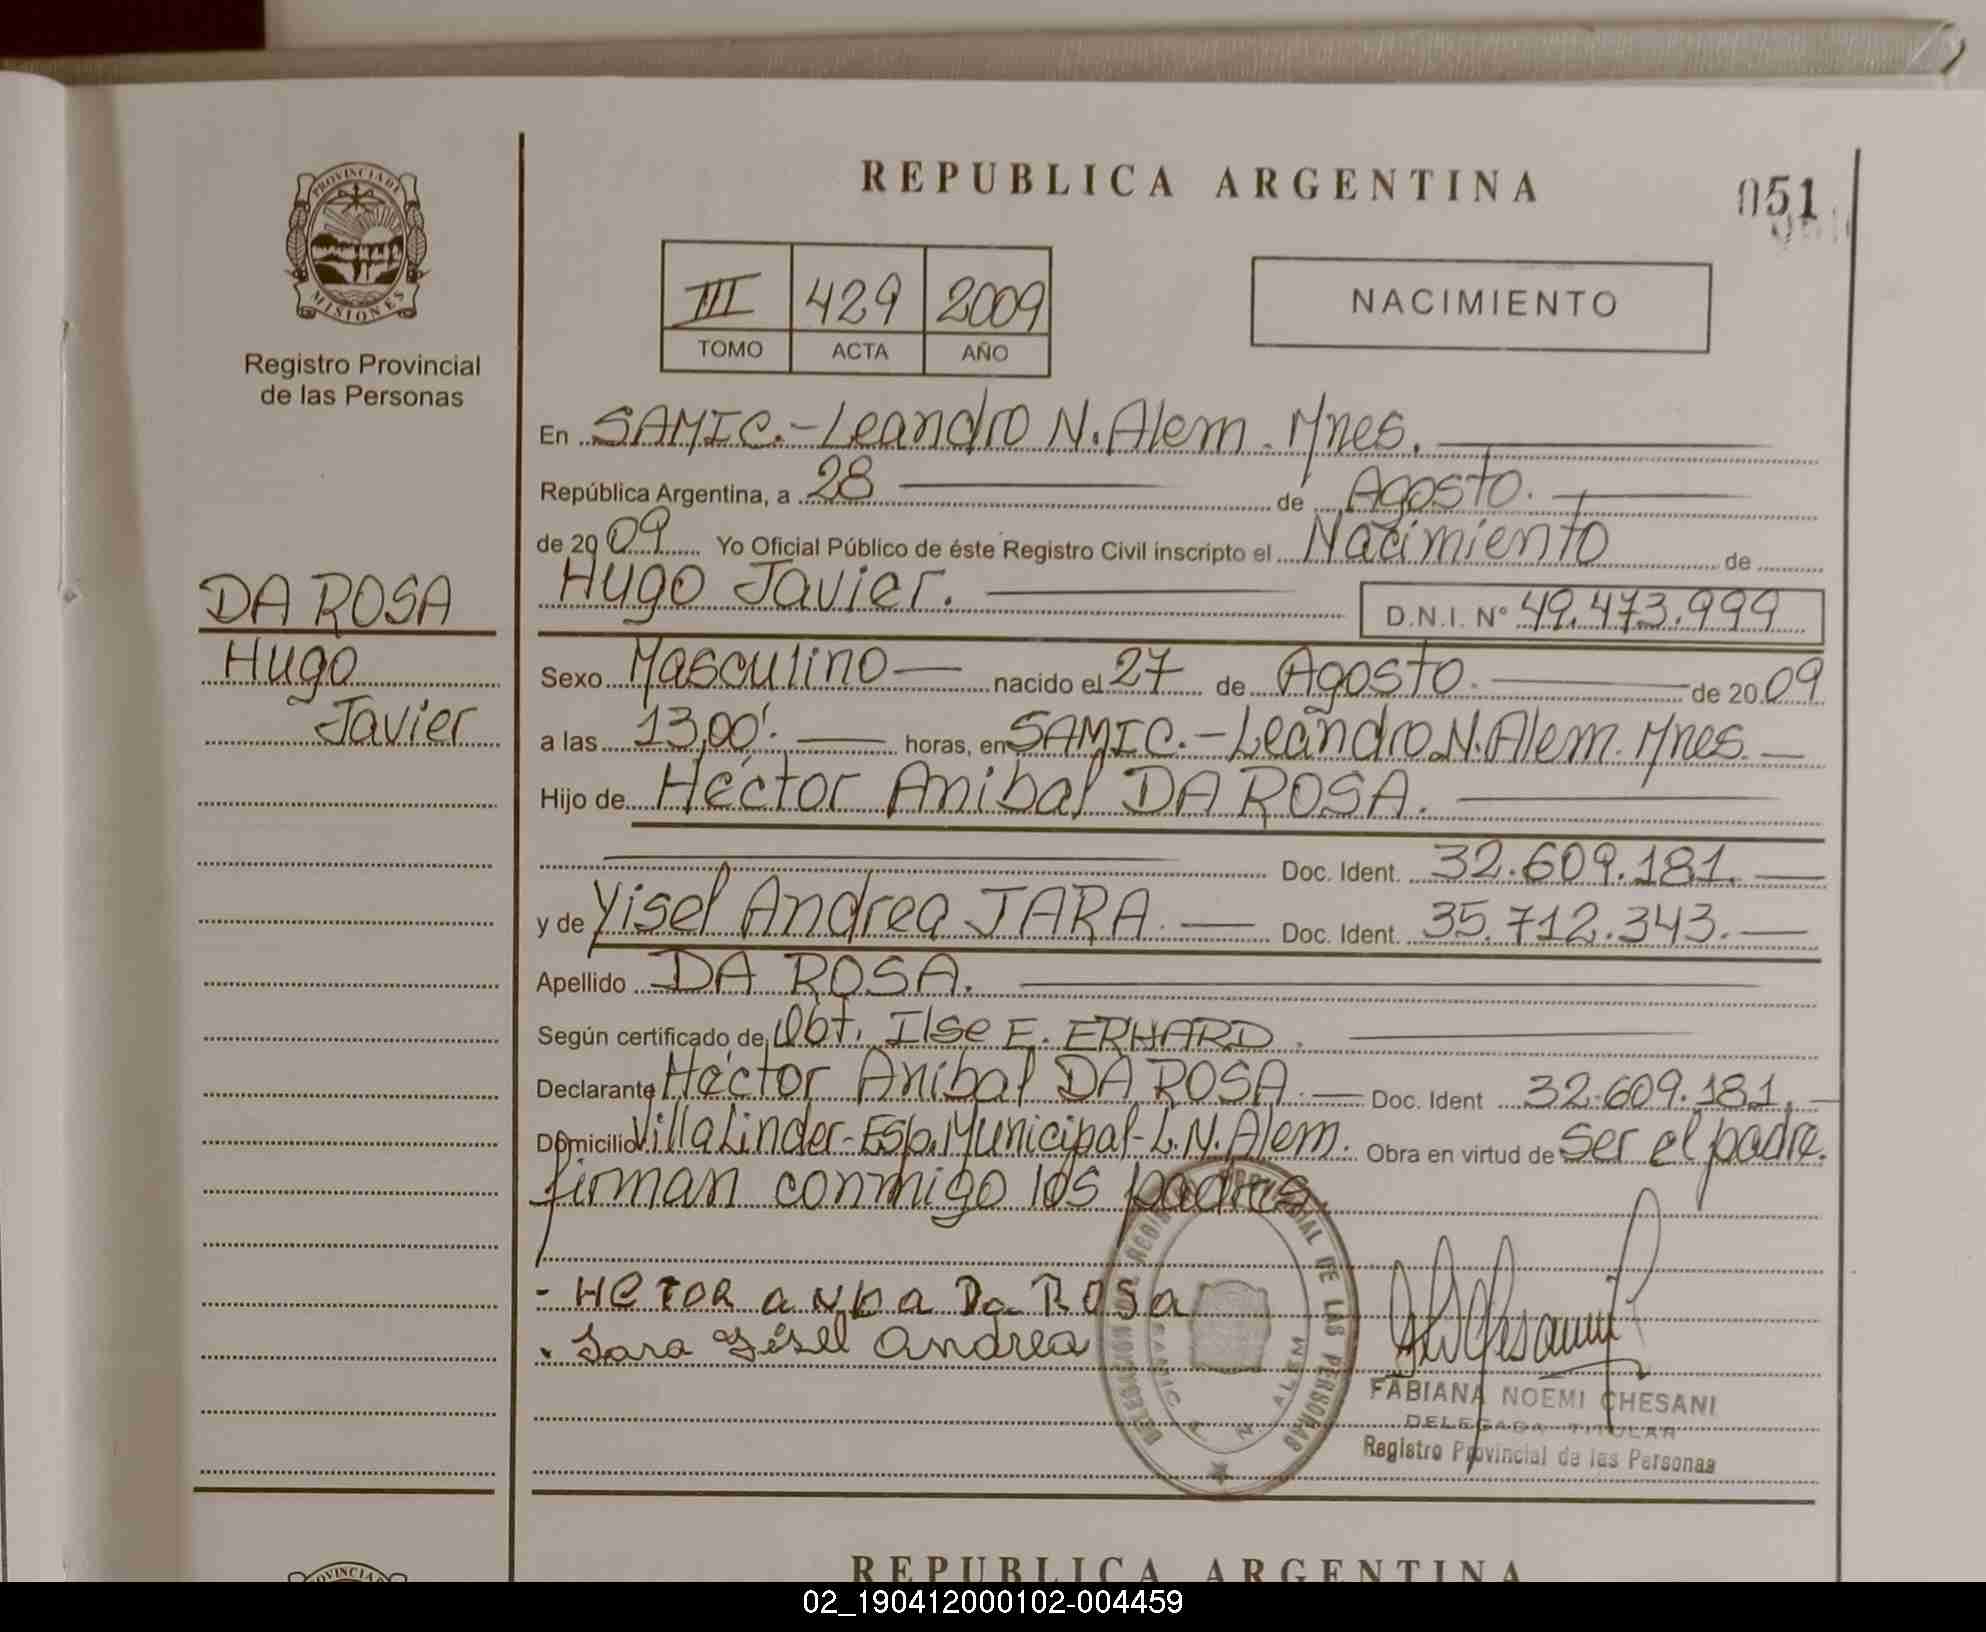 REPUBLICA ARGENTINA
051
PROVINCIA DE
MISIONES
Registro Provincial
de las Personas
III 429 2009
TOMO ACTA AÑO
NACIMIENTO
En SAMIC.-Leandro N. Alem. Mnes.
República Argentina, a 28 de Agosto.
de 2009 Yo Oficial Público de éste Registro Civil inscripto el Nacimiento de
Hugo Javier. D.N.I. Nº 49.473.999
DA ROSA
Hugo
Javier
Sexo Masculino nacido el 27 de Agosto. de 2009
a las 13,00'. horas, en SAMIC.-Leandro N. Alem. Mnes.
Hijo de Héctor Anibal DA ROSA.
Doc. Ident. 32.609.181.
y de Yisel Andrea JARA. Doc. Ident. 35.712.343.
Apellido DA ROSA.
Según certificado de Obt. Ilse E. ERHARD.
Declarante Héctor Anibal DA ROSA. Doc. Ident 32.609.181.
Domicilio Villa Linder-Esp. Municipal-L.N. Alem. Obra en virtud de ser el padre.
firman conmigo los padres.
- HCTOR Da ROSa
. Jara Yisel Andrea
DELEGACION REGISTRO PROVINCIAL DE LAS PERSONAS
SAMIC L. N. ALEM
FABIANA NOEMI CHESANI
DELEGADA TITULAR
Registro Provincial de las Personas
REPUBLICA ARGENTINA
02_190412000102-004459